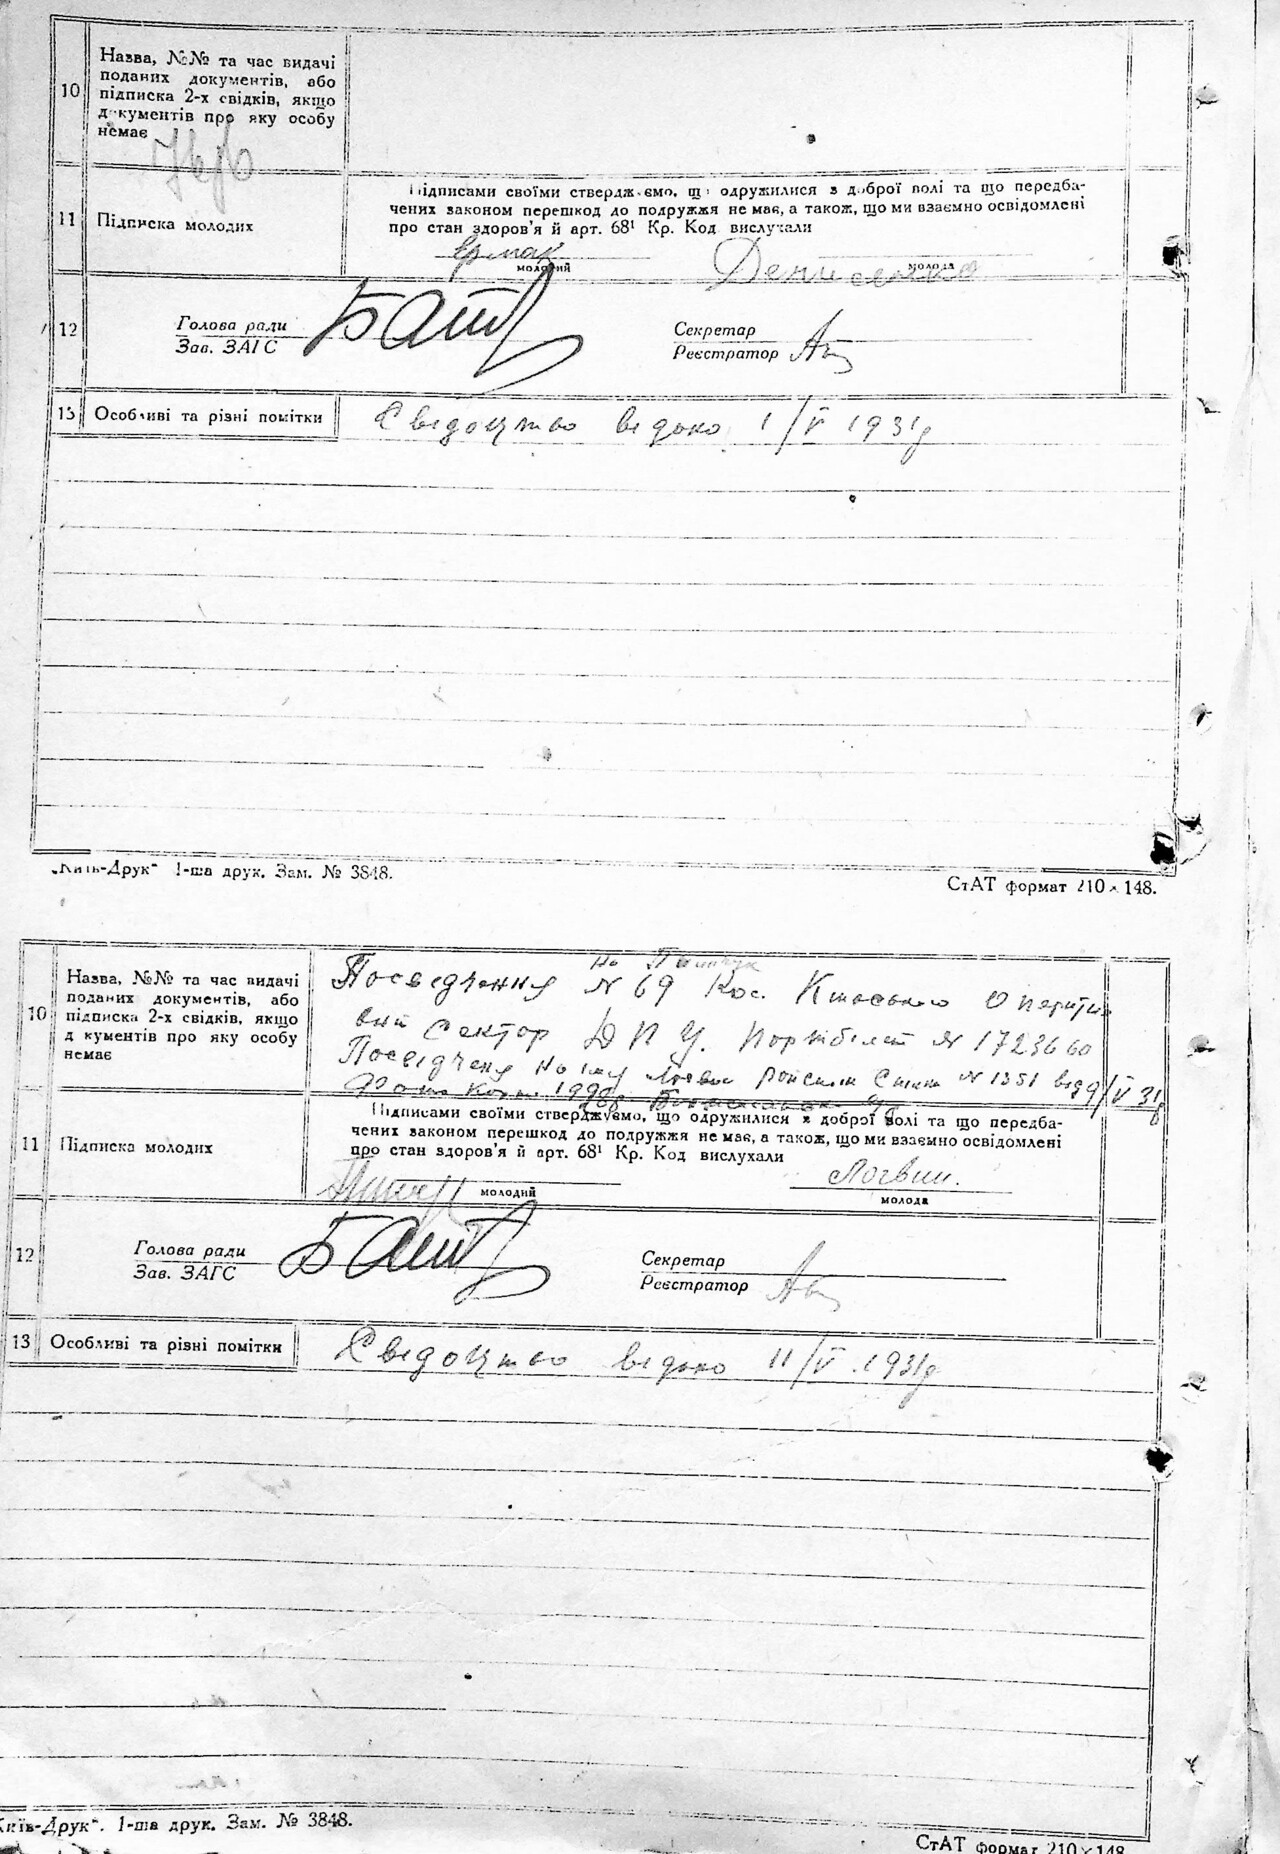 10 Назва, №№ та час видачі
поданих документів, або
підписка 2-х свідків, якщо
документів про яку особу
немає
11 Підписка молодих
Підписами своїми стверджуємо, що одружилися з доброї волі та що передба-
чених законом перешкод до подружжя не має, а також, що ми взаємно освідомлені
про стан здоров'я й арт. 68¹ Кр. Код вислухали
Єрмак Денисенко
молодий молода
12 Голова ради Секретар
Зав. ЗАГС Реєстратор
13 Особливі та різні помітки Свідоцтво відано 1/V 1931р
„Київ-Друк“ 1-ша друк. Зам. № 3848.
СтАТ формат 210×148.
10 Назва, №№ та час видачі
поданих документів, або
підписка 2-х свідків, якщо
документів про яку особу
немає
на
Посвідчення № 69 Кос. Київського Оперити
вний Сектор ДПУ. Портбілет № 1723660
Посвідчена на імя № 1351 від 9/V 31р
11 Підписка молодих
Підписами своїми стверджуємо, що одружилися з доброї волі та що передба-
чених законом перешкод до подружжя не має, а також, що ми взаємно освідомлені
про стан здоров'я й арт. 68¹ Кр. Код вислухали
Логвин.
молодий молода
12 Голова ради Секретар
Зав. ЗАГС Реєстратор
13 Особливі та різні помітки Свідоцтво відано 11/V 1931р
Київ-Друк“. 1-ша друк. Зам. № 3848.
СтАТ формат 210×148